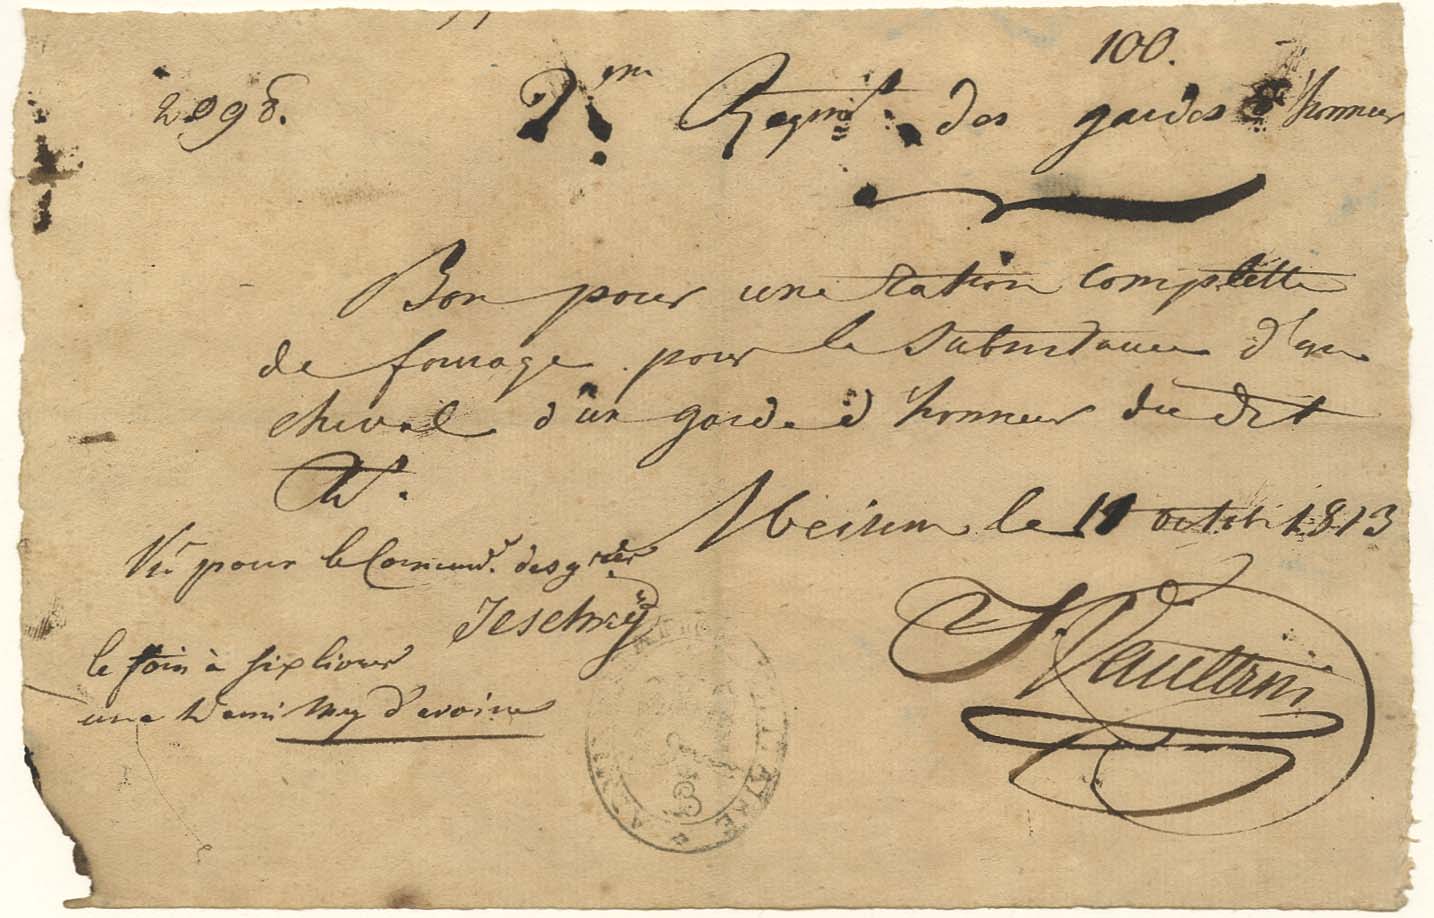 100.
2998. 2em Regmt. des gardes d'honneur
Bon pour une ration complètte
de fourage pour la subsistance d'un
cheval d'un garde d'honneur du dit
Rt.
le 11 octob 1813
Vu pour le Command. des gardes
le foin à six livres
une demi d'avoine
S. Vaultrin